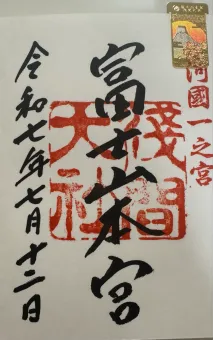 河國一之宮
富士山本宮
淺間大社
令和七年七月十二日